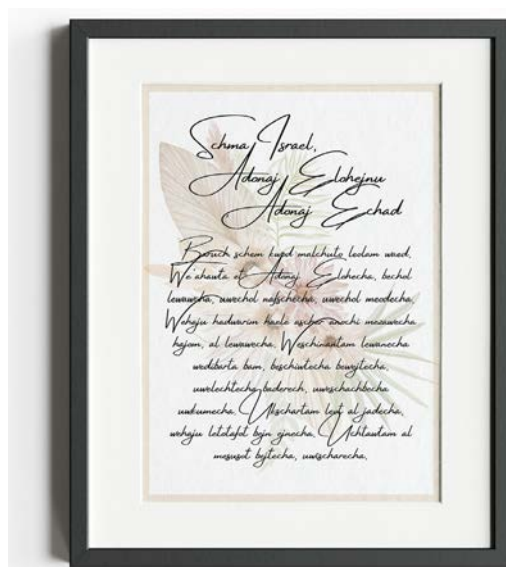 Schma Israel,
Adonaj Elohejnu
Adonaj Echad
Baruch schem kwod malchuto leolam waed.
We'ahawta et Adonaj Elohecha, bechol
lewawcha, uwechol nafschecha, uwechol meodecha.
Wehaju hadwarim haele ascher anochi mezawecha
hajom, al lewawecha. Weschinantam lewanecha
wedibarta bam, beschiwtecha bewejtecha,
uwelechtecha baderech, uweschachbecha
uwkumecha. Ukschartam leot al jadecha,
wehaju letotafot bejn ejnecha. Uchtawtam al
mesusot bejtecha, uwischarecha.